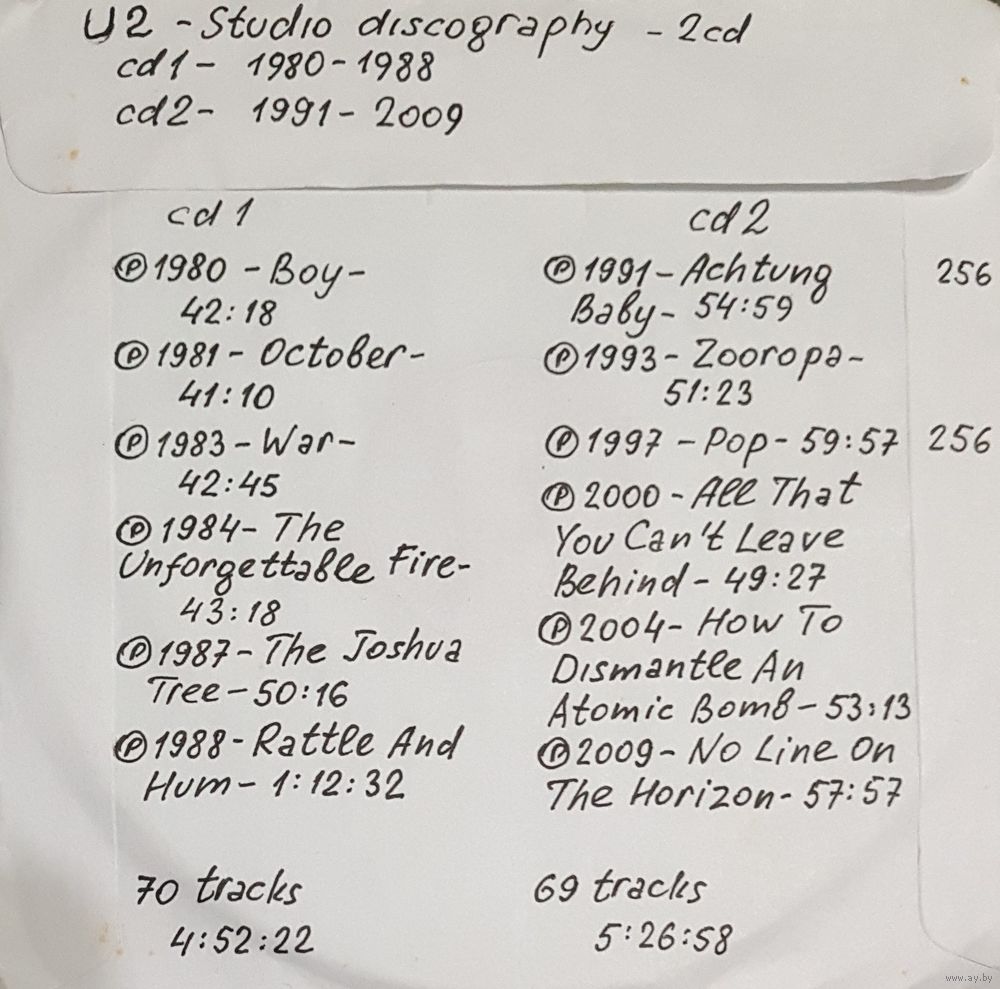 U2 - Studio discography - 2cd
cd1 - 1980-1988
cd2 - 1991 - 2009
cd 1
Ⓟ1980 - Boy -
42:18
Ⓟ1981 - October -
41:10
Ⓟ1983 - War -
42:45
Ⓟ1984 - The
Unforgettable Fire -
43:18
Ⓟ1987 - The Joshua
Tree - 50:16
Ⓟ1988 - Rattle And
Hum - 1:12:32
70 tracks
4:52:22
cd2
Ⓟ1991 - Achtung 256
Baby - 54:59
Ⓟ1993 - Zooropa -
51:23
Ⓟ1997 - Pop - 59:57 256
Ⓟ2000 - All That
You Can't Leave
Behind - 49:27
Ⓟ2004 - How To
Dismantle An
Atomic Bomb - 53:13
Ⓟ2009 - No Line On
The Horizon - 57:57
69 tracks
5:26:58
www.ay.by